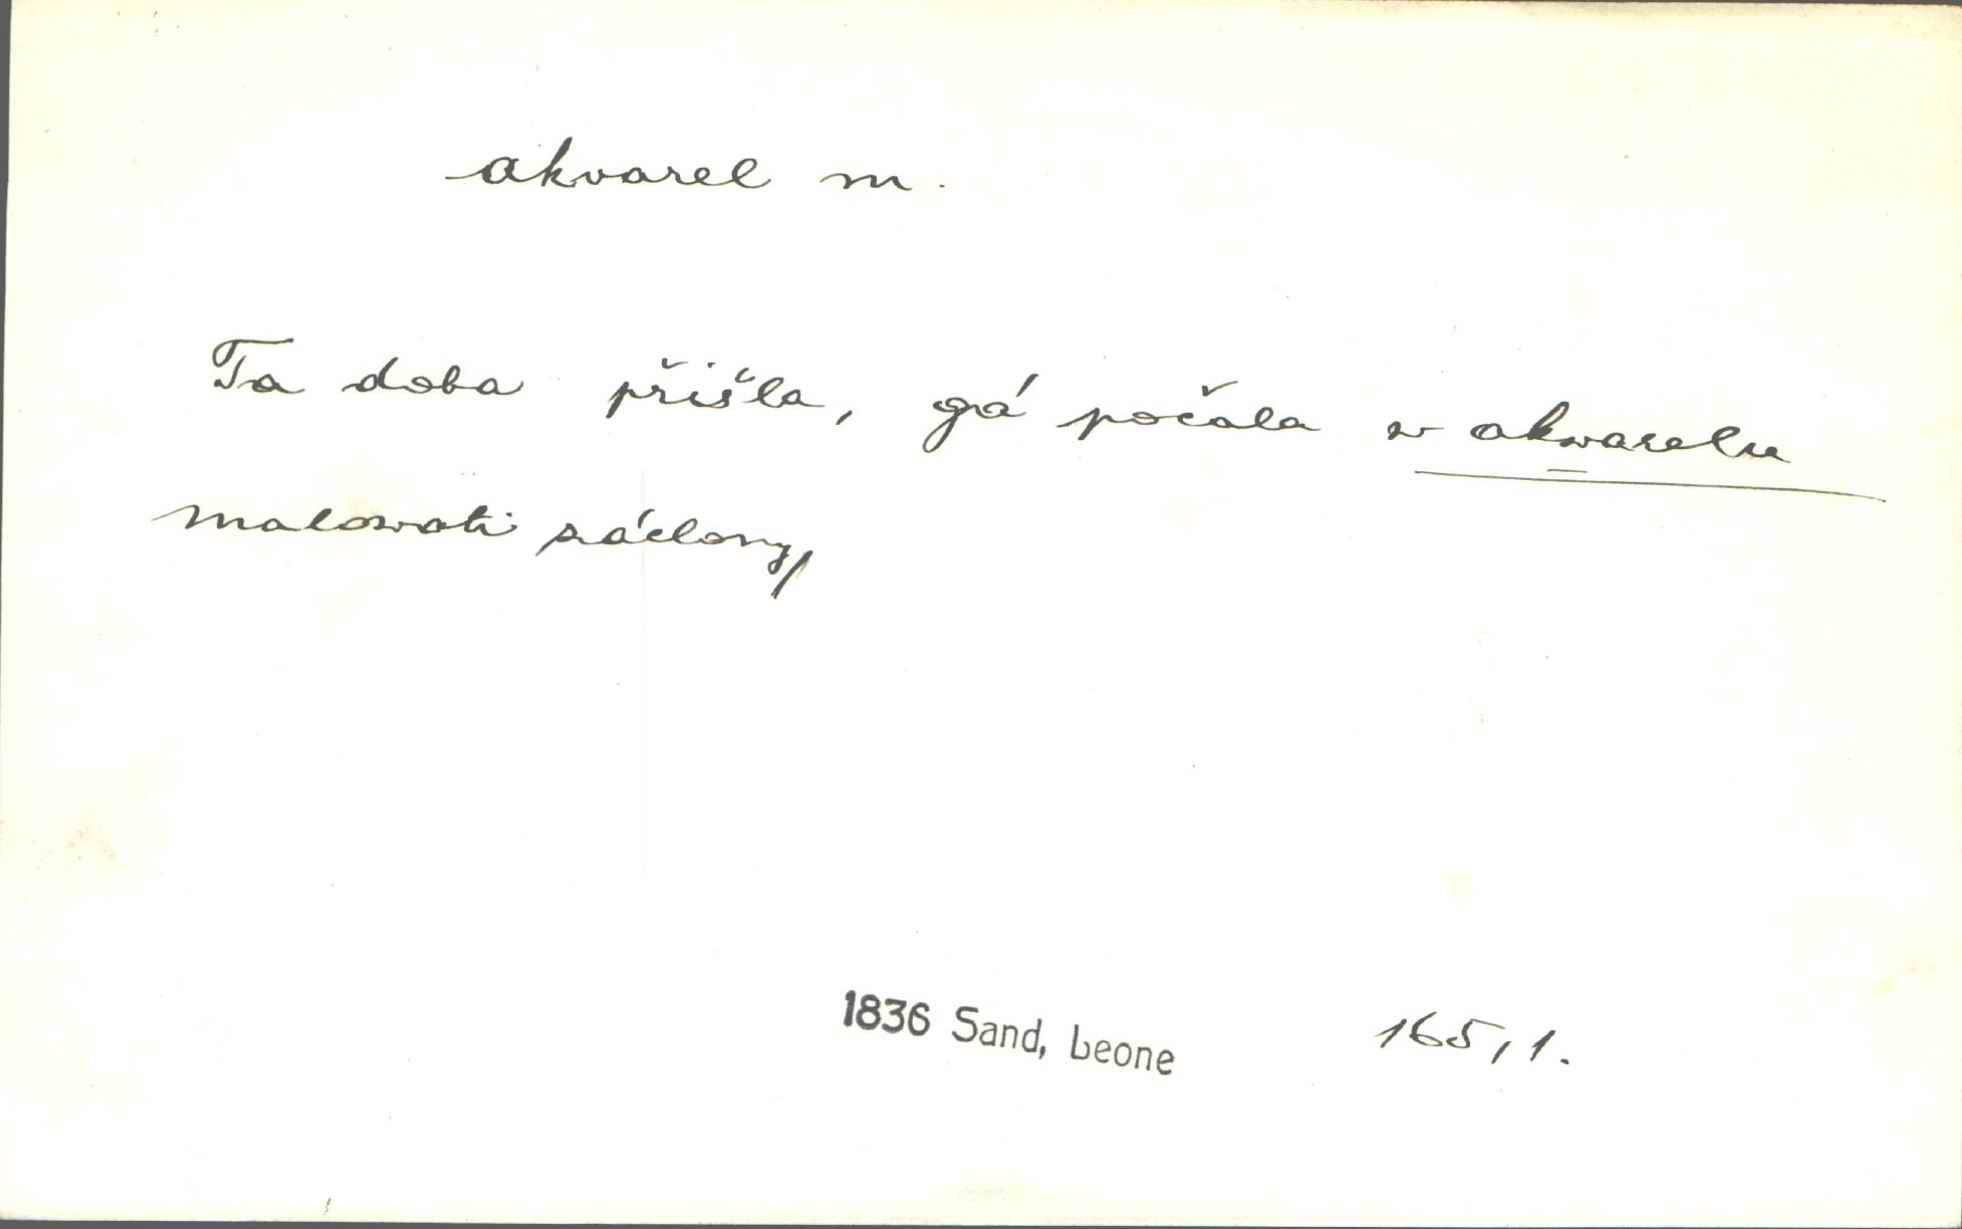 akvarel m.
Ta doba přišla, gá počala w akwarelu
malowati záclony,
1836 Sand, Leone 165,1.